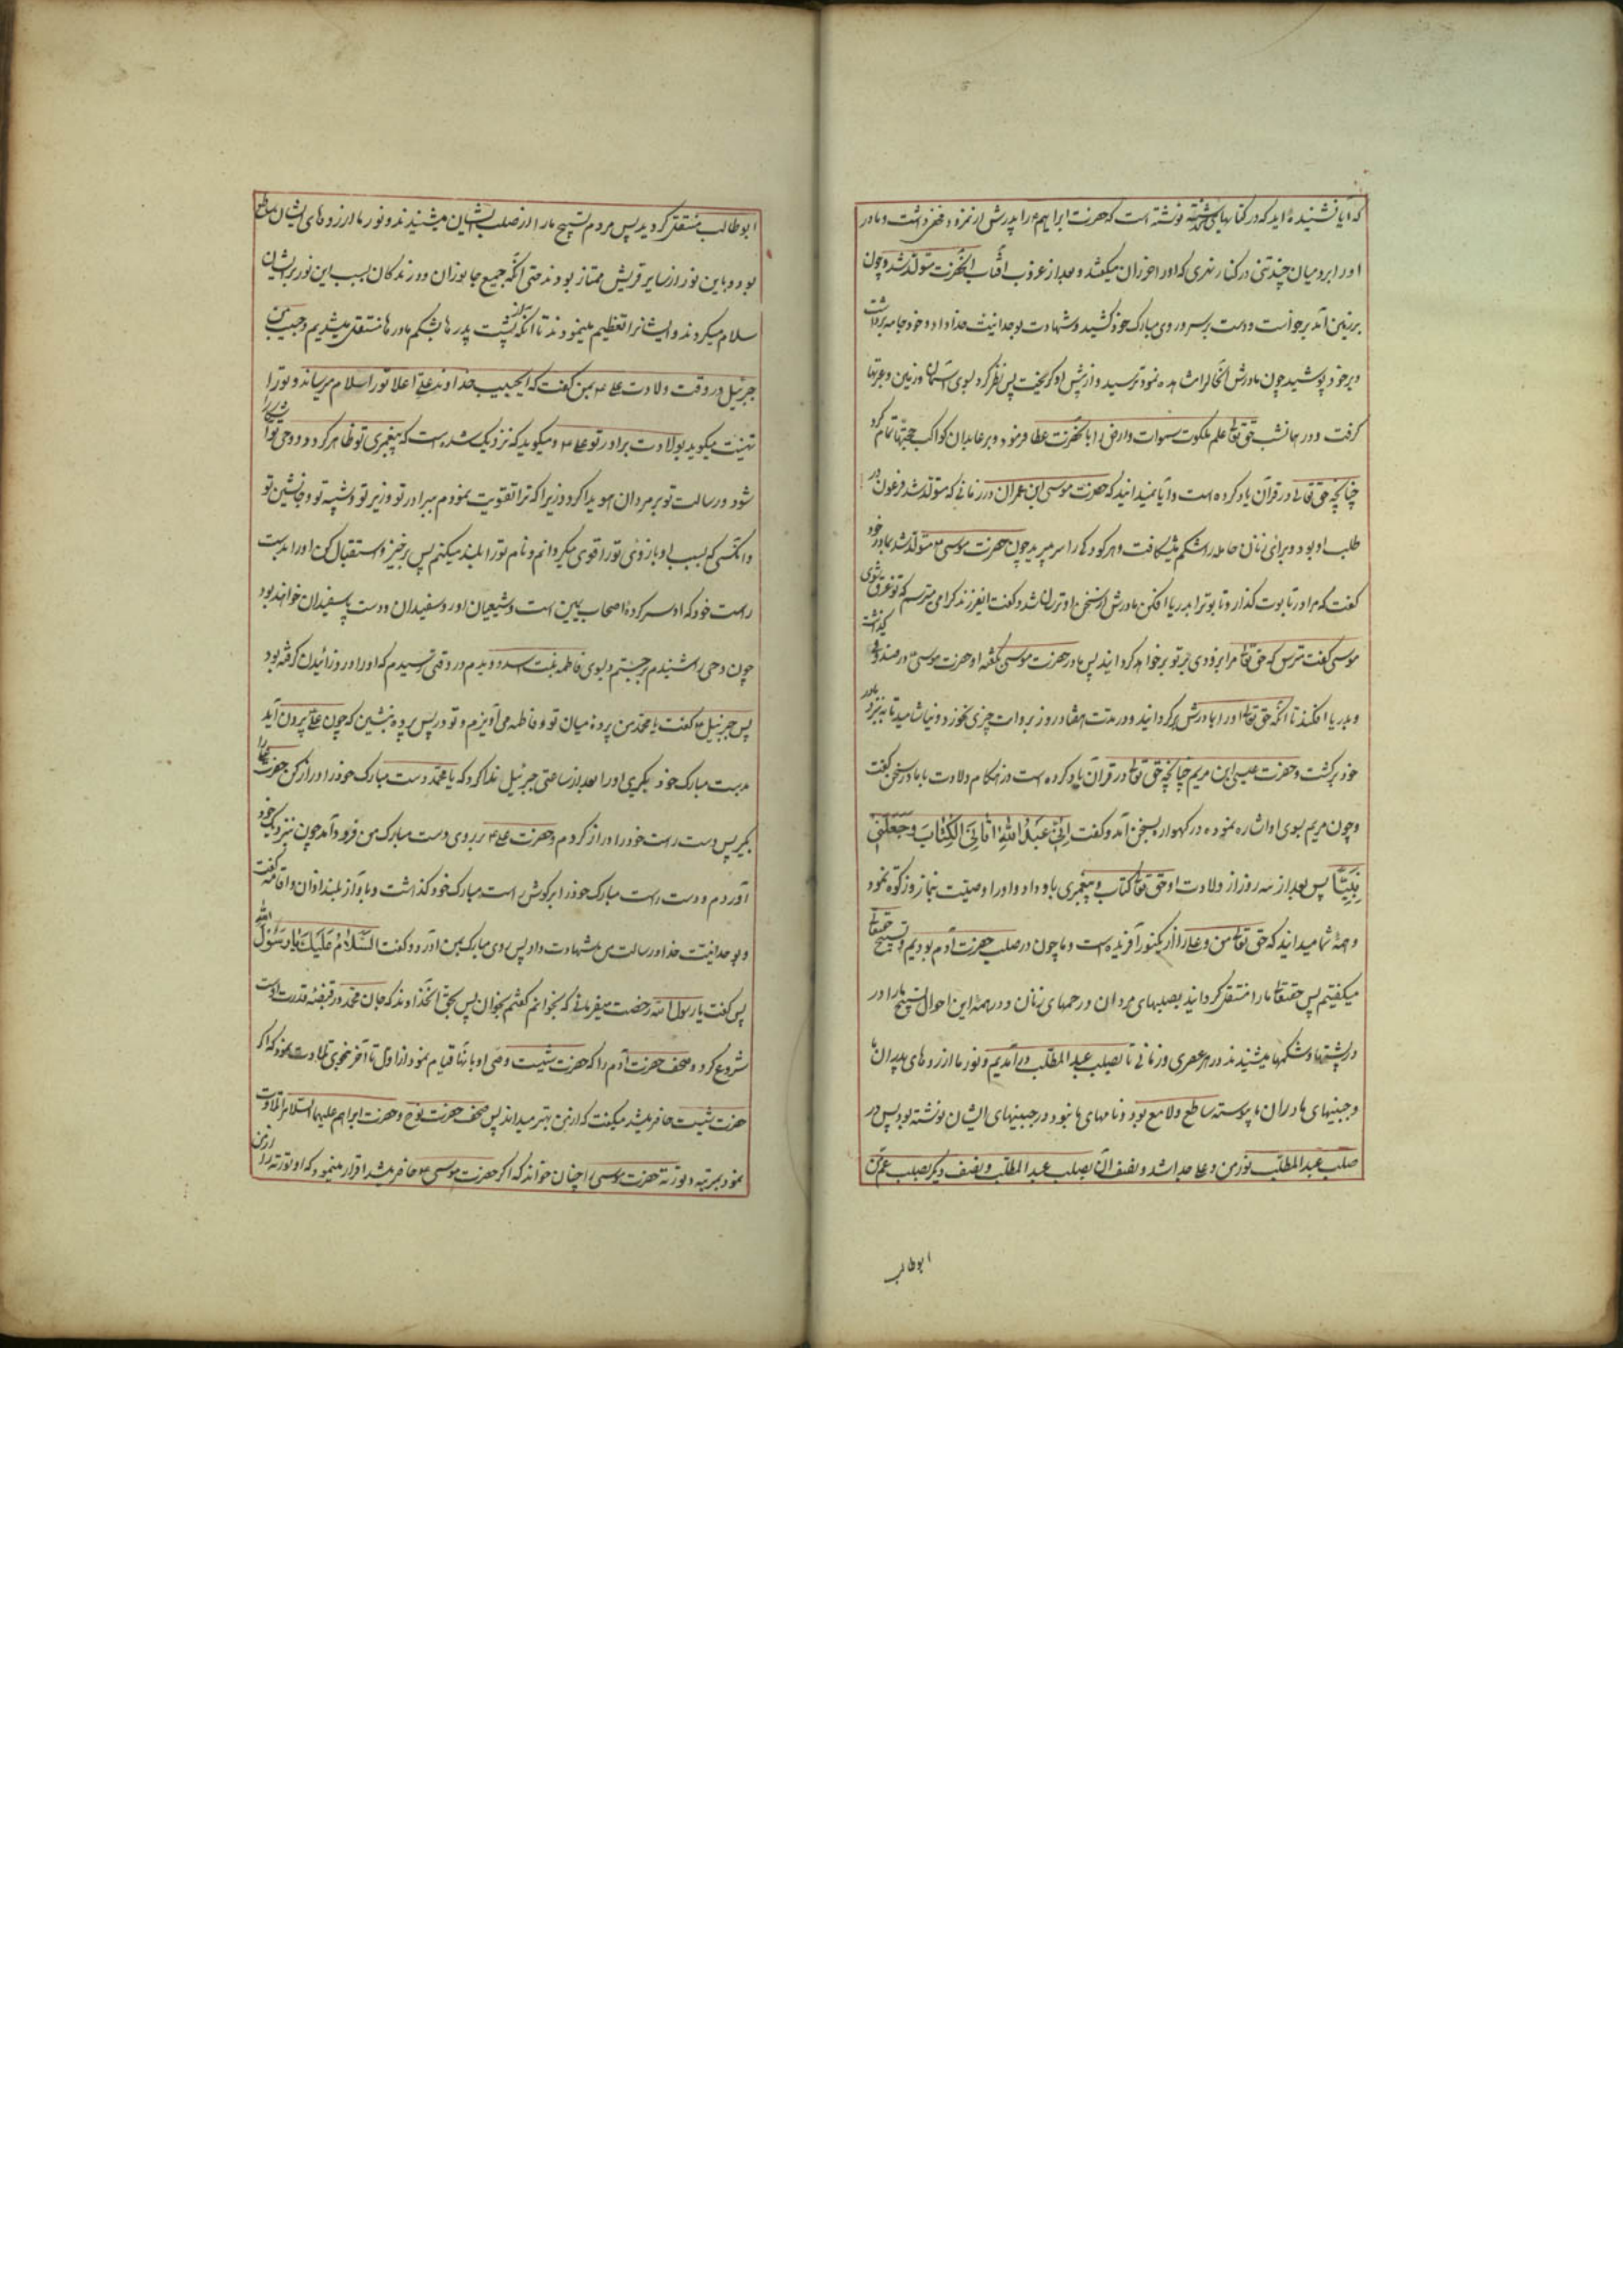 که آیا نشنیده‌اید که در کتابهای گذشته نوشته است که حضرت ابراهیم ع را پدرش از نمرود مخفی داشت و مادر
او را برد میان چند تنی در کنار نهری که او را خزران میگفتند و بعد از غروب آفتاب آنحضرت متولد شد و چون
بر زمین آمد برخواست و دست بر سر و روی مبارک خود کشید و شهادت بوحدانیت خدا داد و خود جامه برداشت
و بر خود پوشید چون مادرش آنحال را مشاهده نمود ترسید و از پیش او گریخت پس نظر کرد بسوی آسمان و زمین و عبرتها
گرفت و در همانشب حق تعالی علم ملکوت سموات و ارض را بآنحضرت عطا فرمود و بر عابدان کواکب حجتها تمام کرد
چنانچه حق تعالی در قرآن یاد کرده است و آیا نمیدانید که حضرت موسی ابن عمران در زمانی که متولد شد فرعون در
طلب او بود و برای او زنان حامله را شکم میشکافت و هر کودکی را سر میبرید چون حضرت موسی ع متولد شد بمادر خود
گفت که مرا در تابوت گذار و تابوت را بدریا افکن مادرش از سخن او ترسان شد و گفت ایفرزند گرامی میترسم که تو غرق شوی
موسی گفت مترس که حق تعالی مرا بزودی بر تو بر خواهد گردانید پس مادر حضرت موسی بگفته او حضرت موسی را در صندوق گذاشت
و بدریا افکند تا آنکه حق تعالی او را بمادرش برگردانید و در مدت هفتاد روز بروایت چیزی نخورد و نیاشامید تا به نزد مادر
خود برگشت و حضرت عیسی ابن مریم چنانچه حق تعالی در قرآن یاد کرده است در هنگام ولادت با مادر سخن گفت
و چون مریم بسوی او اشاره نمود در گهواره بسخن آمد و گفت اِنّی عَبدُ اللهِ اٰتانِیَ الکِتابَ وَ جَعَلَنی
نَبِیّاً پس بعد از سه روز از ولادت او حق تعالی کتاب و پیغمبری باو داد و او را وصیت بنماز و زکوة نمود
و همهٔ شما میدانید که حق تعالی من و علی را از یکنور آفریده است و ما چون در صلب حضرت آدم بودیم و تسبیح حقتعالی
میگفتیم پس حقتعالی ما را منتقل گردانید بصلبهای مردان و رحمهای زنان و در همهٔ این احوال تسبیح ما را در
در پشتها و شکمها میشنیدند در هر عصری و زمانی تا بصلب عبد المطلب در آمدیم و نور ما از روهای پدران ما
و جبینهای مادران ما پیوسته ساطع و لامع بود و نامهای ما بنور در جبینهای ایشان نوشته بود پس در
صلب عبد المطلب نور من و علی جدا شد و نصف آن بصلب عبد المطلب و نصف دیگر بصلب عم من
ابوطالب
ابوطالب منتقل گردید پس مردم تسبیح ما را از صلب ایشان میشنیدند و نور ما از روهای ایشان ساطع
بود و باین نور از سایر قریش ممتاز بودند حتی آنکه جمیع جانوران و درندگان بسبب این نور بر ایشان
سلام میکردند و ایشانرا تعظیم مینمودند تا آنکه از پشت پدرها بشکم مادرها منتقل شدیم و حبیب من
جبرئیل در وقت ولادت علی ع بمن گفت که ایحبیب خداوند علی اعلا تو را سلام میرساند و تو را
تهنیت میگوید بولادت برادر تو علی ع و میگوید که نزدیک شده است که پیغمبری تو ظاهر گردد و وحی تو آشکارا
شود و رسالت تو بر مردان هویدا گردد زیرا که ترا تقویت نمودم ببرادر تو و وزیر تو و شبیه تو و جانشین تو
و آنکسی که بسبب او بازوی تو را قوی میگردانم و نام تو را بلند میکنم پس برخیز و استقبال کن او را بدست
راست خود که او سرکردهٔ اصحاب یمین است و شیعیان او رو سفیدان و دست و پا سفیدان خواهند بود
چون وحی را شنیدم برجستم و بسوی فاطمه بنت اسد دویدم در وقتی رسیدم که او را درد زائیدن گرفته بود
پس جبرئیل ع گفت یا محمد من پرده میان تو و فاطمه می‌آویزم و تو در پس پرده بنشین که چون علی بیرون آید
بدست مبارک خود بگیری او را بعد از ساعتی جبرئیل ندا کرد که یا محمد دست مبارک خود را دراز کن حضرت علی را
بگیر پس دست راست خود را دراز کردم و حضرت علی ع بر روی دست مبارک من فرود آمد چون بنزدیک خود
آوردم و دست راست مبارک خود را بر گوش راست مبارک خود گذاشت و بآواز بلند اذان و اقامه گفت
و بوحدانیت خدا و رسالت من شهادت داد پس روی مبارک بمن آورد و گفت السَّلامُ عَلَیکَ یا رَسُولَ الله
پس گفت یا رسول الله رخصت میفرمائی که بخوانم گفتم بخوان پس بحق آنخداوند که جان محمد در قبضه قدرت اوست
شروع کرد و صحف حضرت آدم را که حضرت شیث وصی او بآنها قیام نمود از اول تا آخر بنحوی تلاوت نمود که اگر
حضرت شیث حاضر میشد میگفت که از من بهتر میداند پس صحف حضرت نوح و حضرت ابراهیم علیهما السلام را تلاوت
نمود بمرتبه و توریة حضرت موسی را چنان خواند که اگر حضرت موسی ع حاضر میشد اقرار مینمود که او توریة را از من